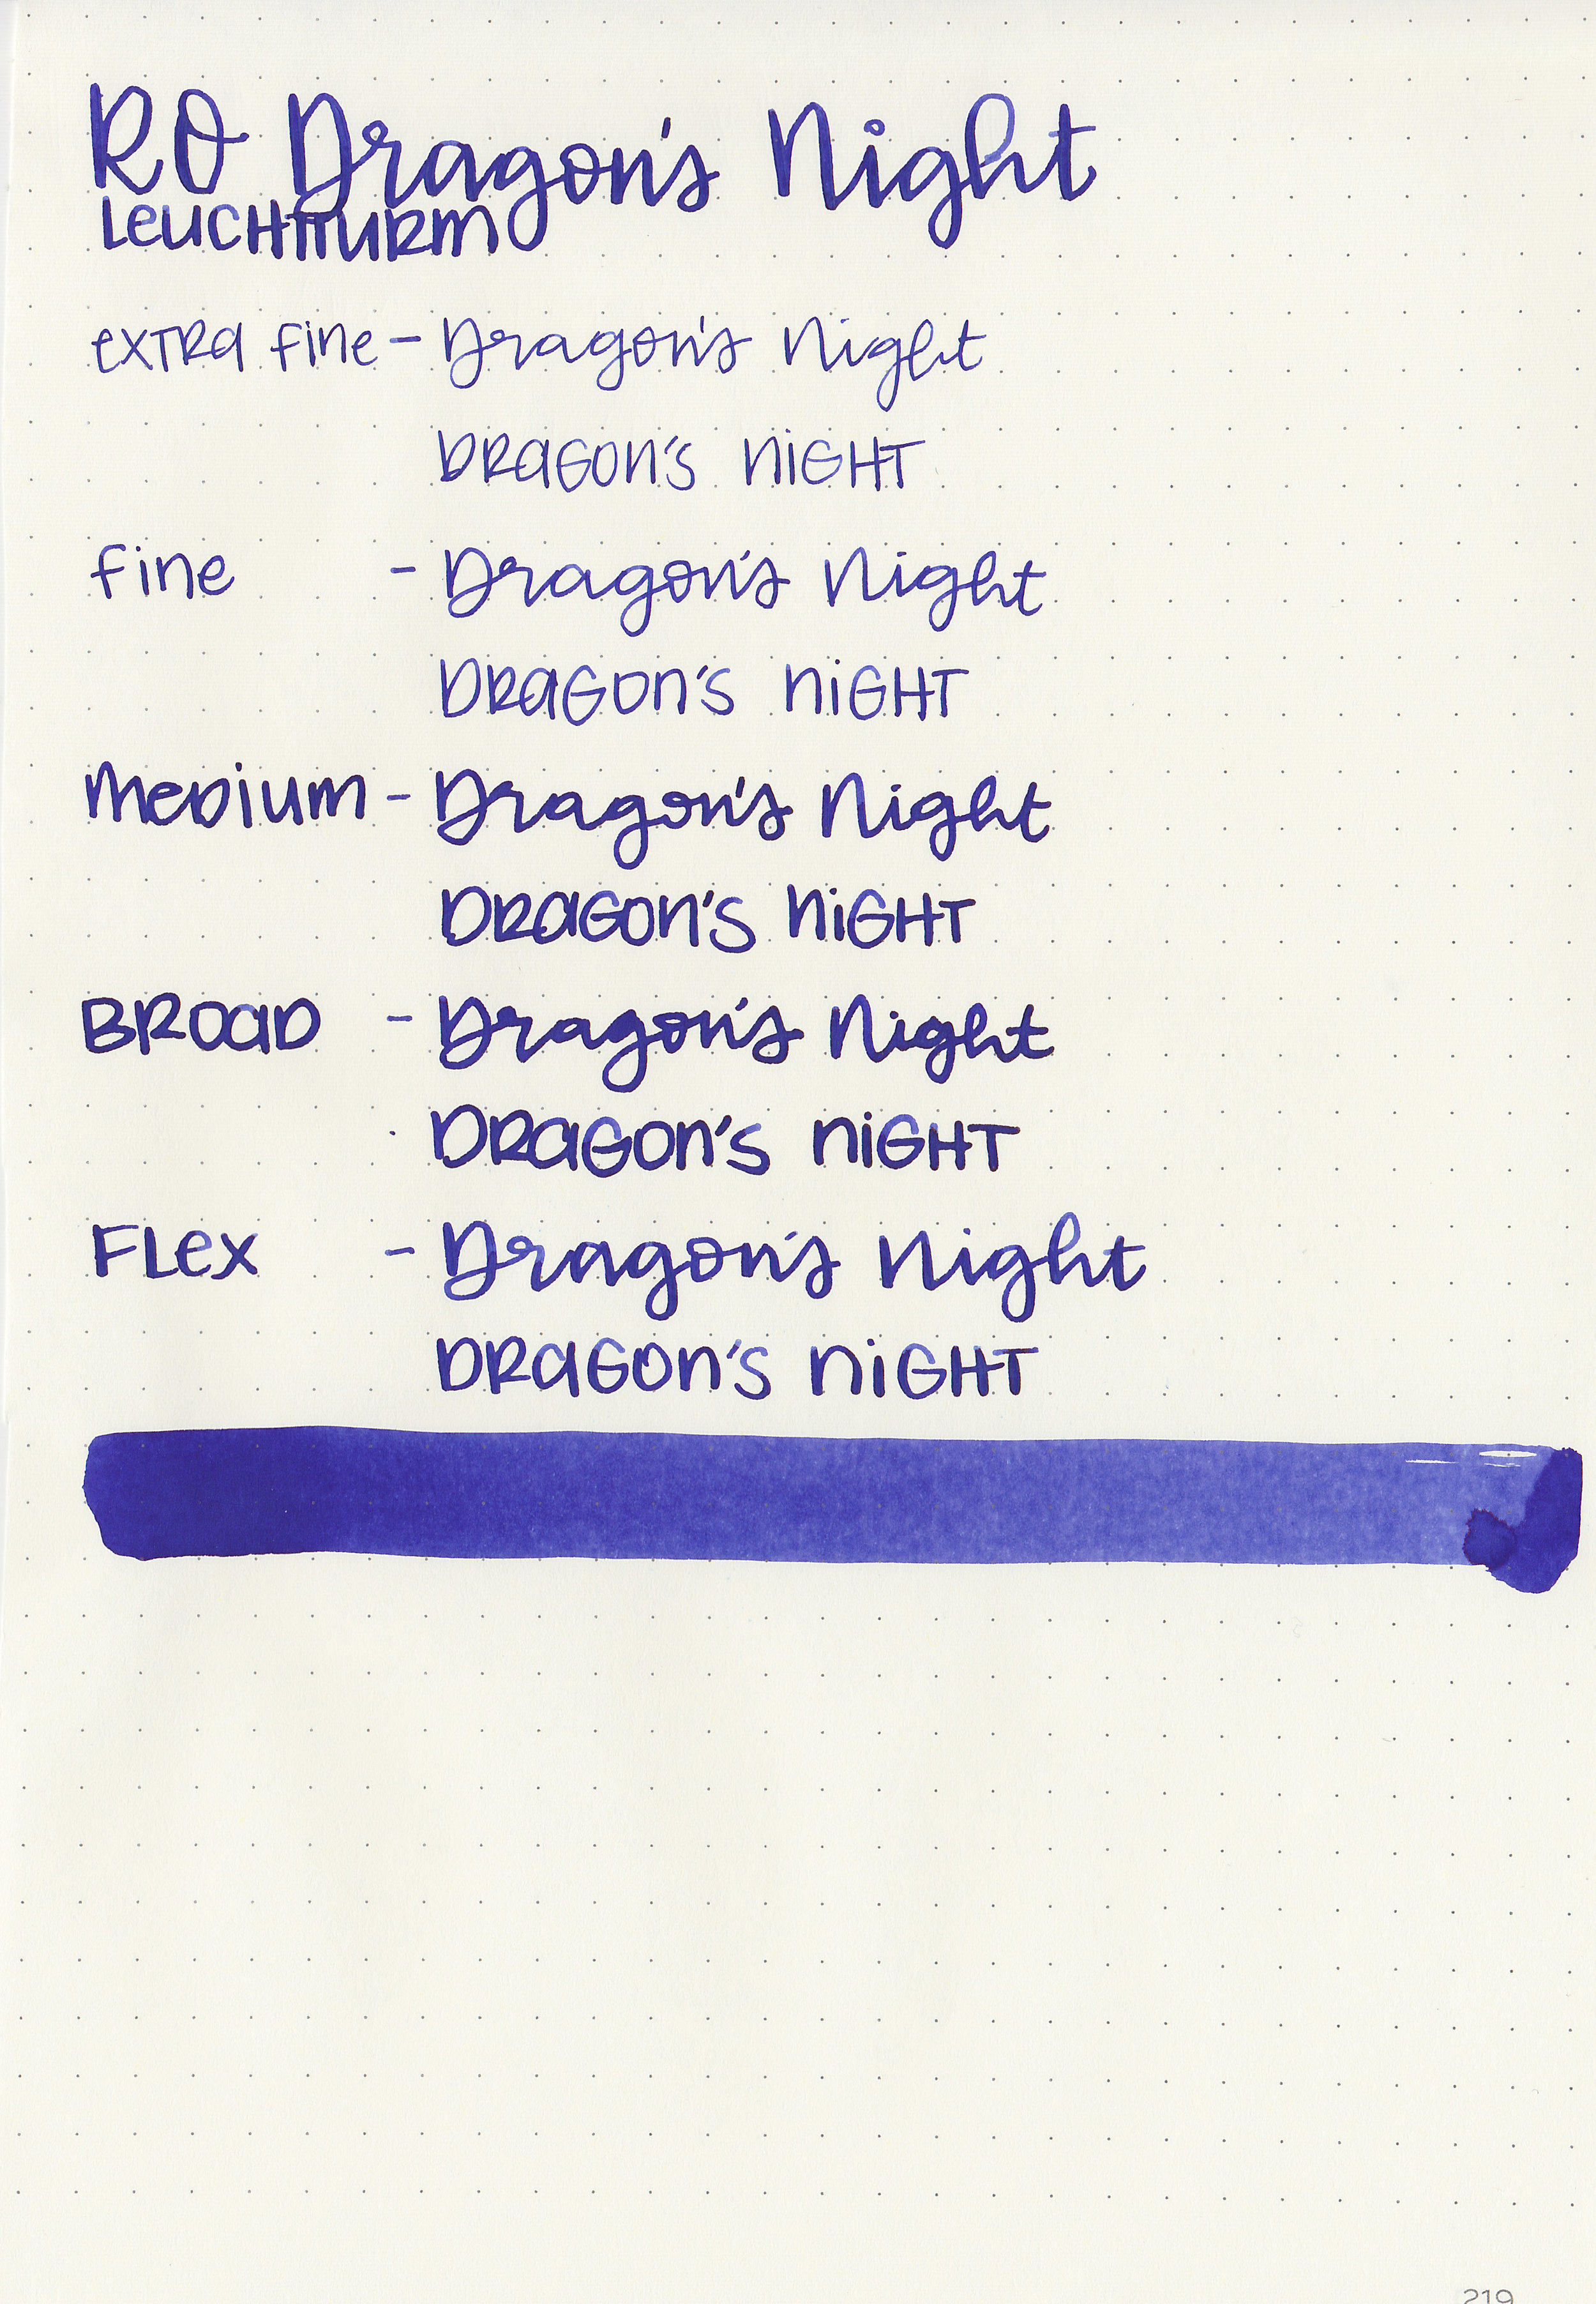 RO Dragon's Night
LEUCHTTURM
EXTRA FINE - Dragon's Night
DRAGON'S NIGHT
FINE - Dragon's Night
DRAGON'S NIGHT
MEDIUM - Dragon's Night
DRAGON'S NIGHT
BROAD - Dragon's Night
DRAGON'S NIGHT
FLEX - Dragon's Night
DRAGON'S NIGHT
219